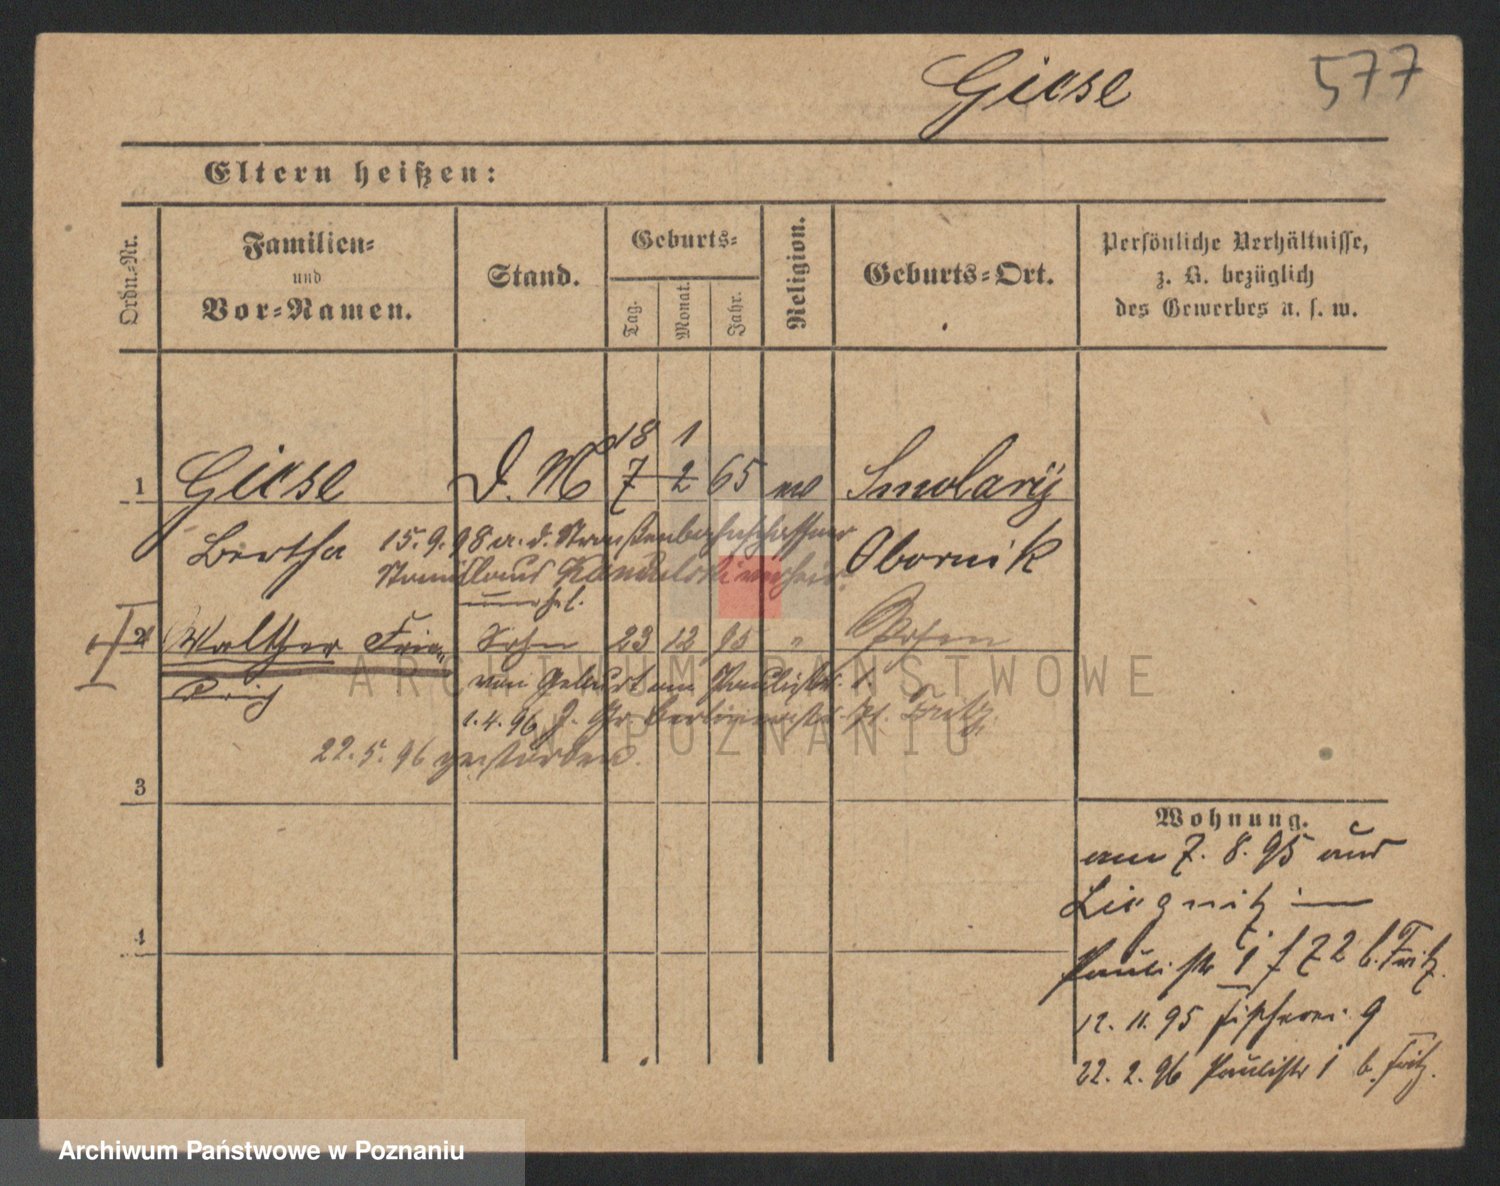 Giese 577
Eltern heißen:
Ordn.-Nr.
Familien-
und
Vor-Namen.
Stand.
Geburts-
Tag.
Monat.
Jahr.
Religion.
Geburts-Ort.
Persönliche Verhältnisse,
z. B. bezüglich
des Gewerbes u. s. w.
18 1
1 Giese D. M 7 2 65 ev Smolary
Bertha 15.9.98 a. d. Straßenbahnschaffner Obornik
Stanislaus verheir.
2 Walther Frie- Sohn 23 12 95 " Posen
drich von Geburt an Paulistr. 1.
1.4.96 Berlinerstr. b. Fritz.
22.5.96 gestorben.
3
4
Wohnung.
am 7.8.95 aus
Liegnitz —
Paulistr 1 b. Fritz.
12.11.95 Fischerei 9
22.2.96 Paulistr 1 b. Fritz.
ARCHIWUM PAŃSTWOWE
W POZNANIU
Archiwum Państwowe w Poznaniu